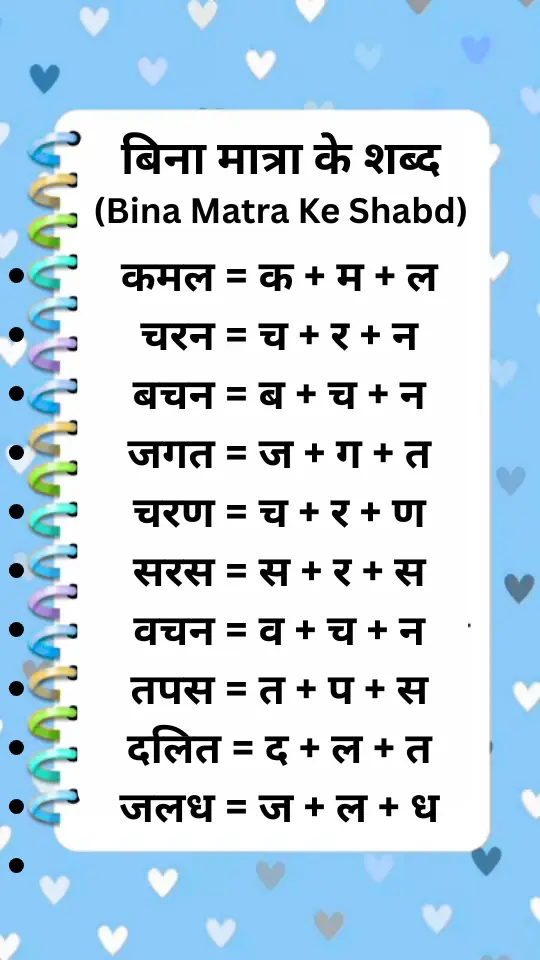 बिना मात्रा के शब्द
(Bina Matra Ke Shabd)
• कमल = क + म + ल
• चरन = च + र + न
• बचन = ब + च + न
• जगत = ज + ग + त
• चरण = च + र + ण
• सरस = स + र + स
• वचन = व + च + न
• तपस = त + प + स
• दलित = द + ल + त
• जलध = ज + ल + ध
•